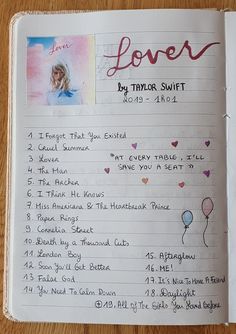 Lover
Lover
by TAYLOR SWIFT
2019 - 1h01
1 I Forgot That You Existed
2 Cruel Summer
3 Lover
4 The Man
5 The Archer
6 I Think He Knows
7 Miss Americana & The Heartbreak Prince
8 Paper Rings
9 Cornelia Street
10 Death by a Thousand Cuts
11 London Boy
12 Soon You'll Get Better
13 False God
14 You Need To Calm Down
"AT EVERY TABLE, I'LL
SAVE YOU A SEAT"
15. Afterglow
16. ME!
17. It's Nice To Have A Friend
18. Daylight
+ 19. All Of The Girls You Loved Before